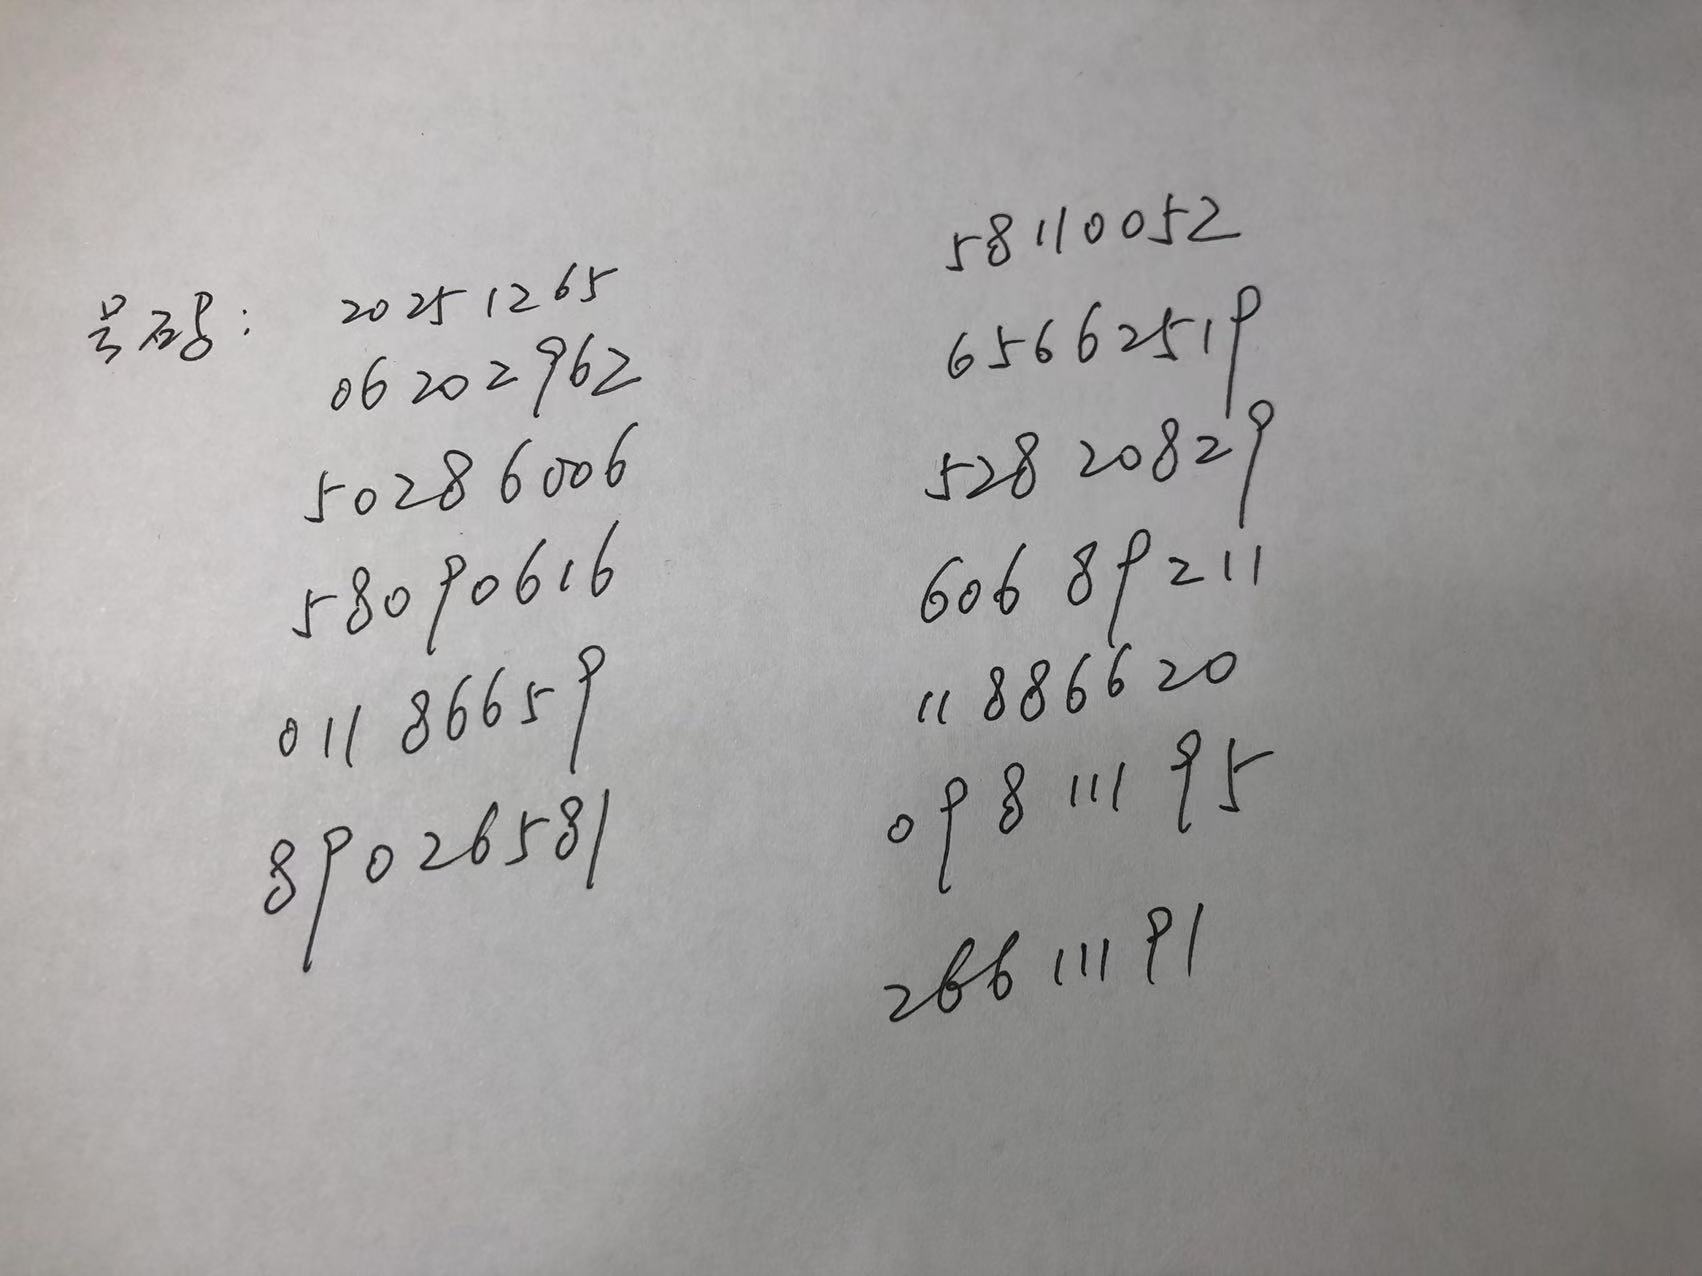 号码: 20251265
06202962
50286006
58090616
01186659
89026581
58110052
65662519
52820829
60689211
11886620
09811195
26611191